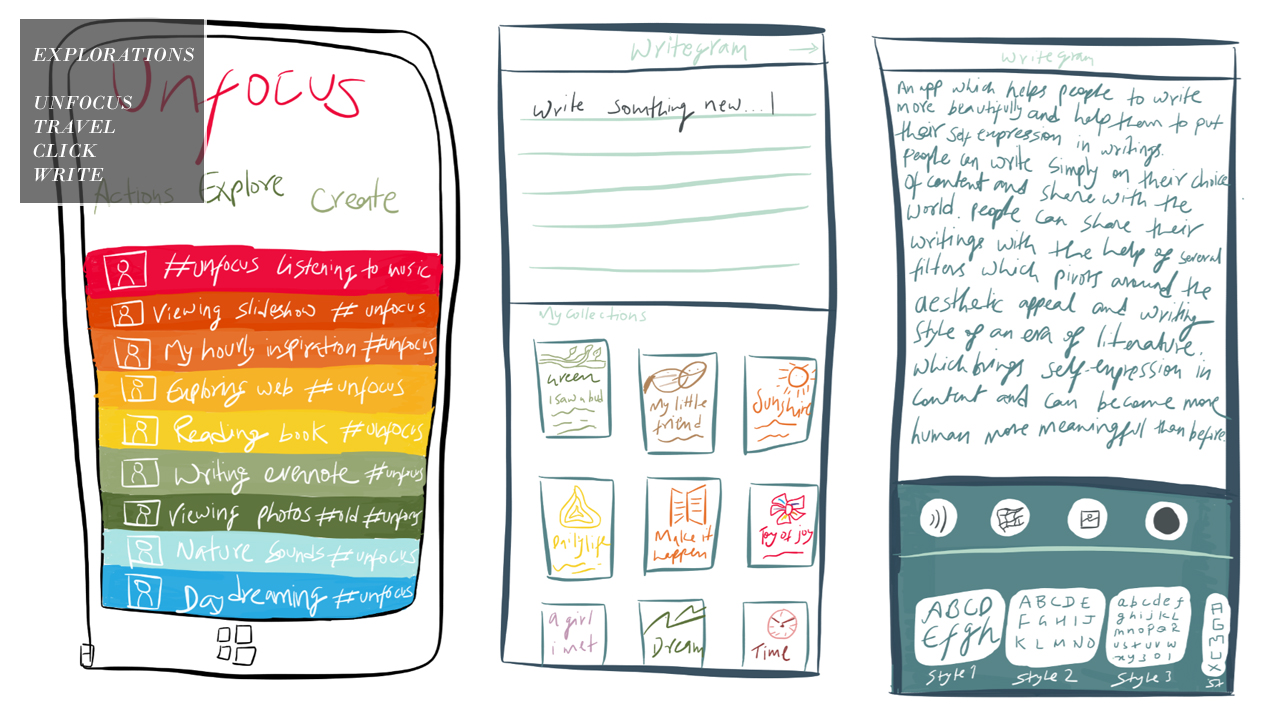 EXPLORATIONS
UNFOCUS
TRAVEL
CLICK
WRITE
Unfocus
Actions Explore Create
#unfocus Listening to music
Viewing slideshow # unfocus
My hourly inspiration #unfocus
Exploring web #unfocus
Reading book #unfocus
Writing evernote #unfocus
Viewing photos #old #unfocus
Nature Sounds #unfocus
Day dreaming #unfocus
Writegram
Write somthing new...
My Collections
Green
I saw a bud
My little
friend
Sunshine
Dailylife
Make it
happen
Toy of joy
a girl
i met
Dream
Time
writegram
An app which helps people to write
more beautifully and help them to put
their self expression in writings.
People can write simply on their choice
of content and share with the
world. people can share their
writings with the help of several
filters which pivots around the
aesthetic appeal and writing
style of an era of literature.
which brings self-expression in
content and can become more
human more meaningful than before.
ABCD
Efgh
ABCDE
FGHIJ
KLMNO
abcdef
ghijkL
Style 1
Style 2
Style 3
St